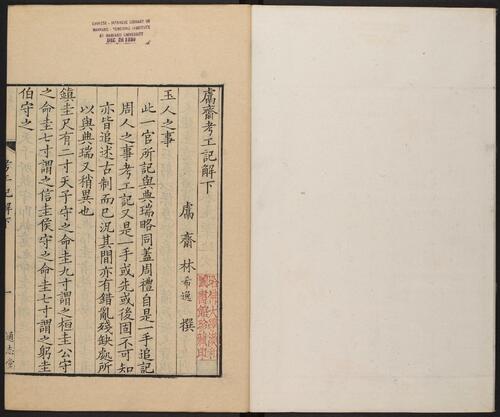 CHINESE - JAPANESE LIBRARY OF
HARVARD - YENCHING INSTITUTE
AT HARVARD UNIVERSITY
鬳齋考工記解下
鬳齋林希逸撰
哈佛大學漢和
圖書館珍藏印
玉人之事
此一官所記與典瑞略同蓋周禮自是一手追記
周人之事考工記又是一手或先或後固不可知
亦皆追述古制而已況其間亦有錯亂殘缺處所
以與典瑞又稍異也
鎮圭尺有二寸天子守之命圭九寸謂之桓圭公守
之命圭七寸謂之信圭侯守之命圭七寸謂之躬圭
伯守之
考工記解下 一 通志堂